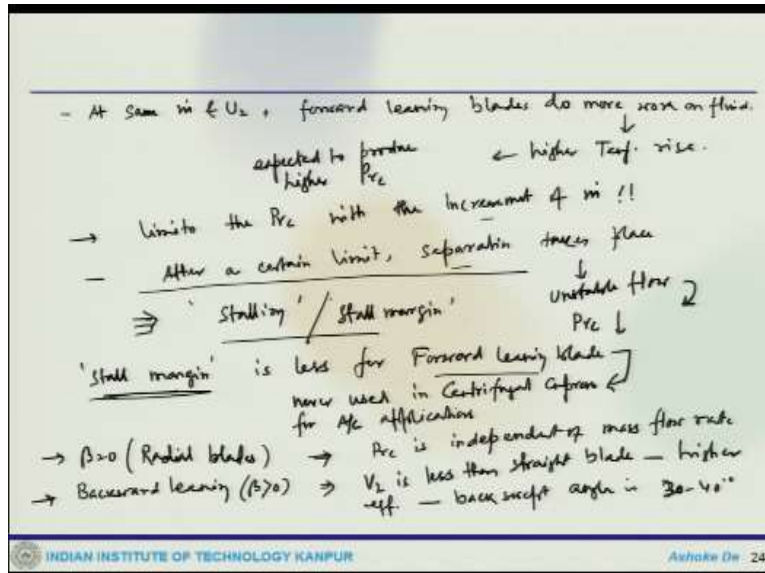 - At same ṁ & U₂, forward leaning blades do more work on fluid.
↓
expected to produce ← higher Temp. rise.
higher Prc
→ limits the Prc with the Increment of ṁ !!
- After a certain limit, separation takes place
↓
⇛ 'Stalling' / 'Stall margin' Unstable flow
Prc ↓
'Stall margin' is less for Forward leaning blade
never used in Centrifugal
for A/c application
→ β=0 (Radial blades) → Prc is independent of mass flow rate
→ Backward leaning (β>0) ⇒ V₂ is less than straight blade — higher
eff. — back swept angle is 30-40°
INDIAN INSTITUTE OF TECHNOLOGY KANPUR
Ashoke De 24